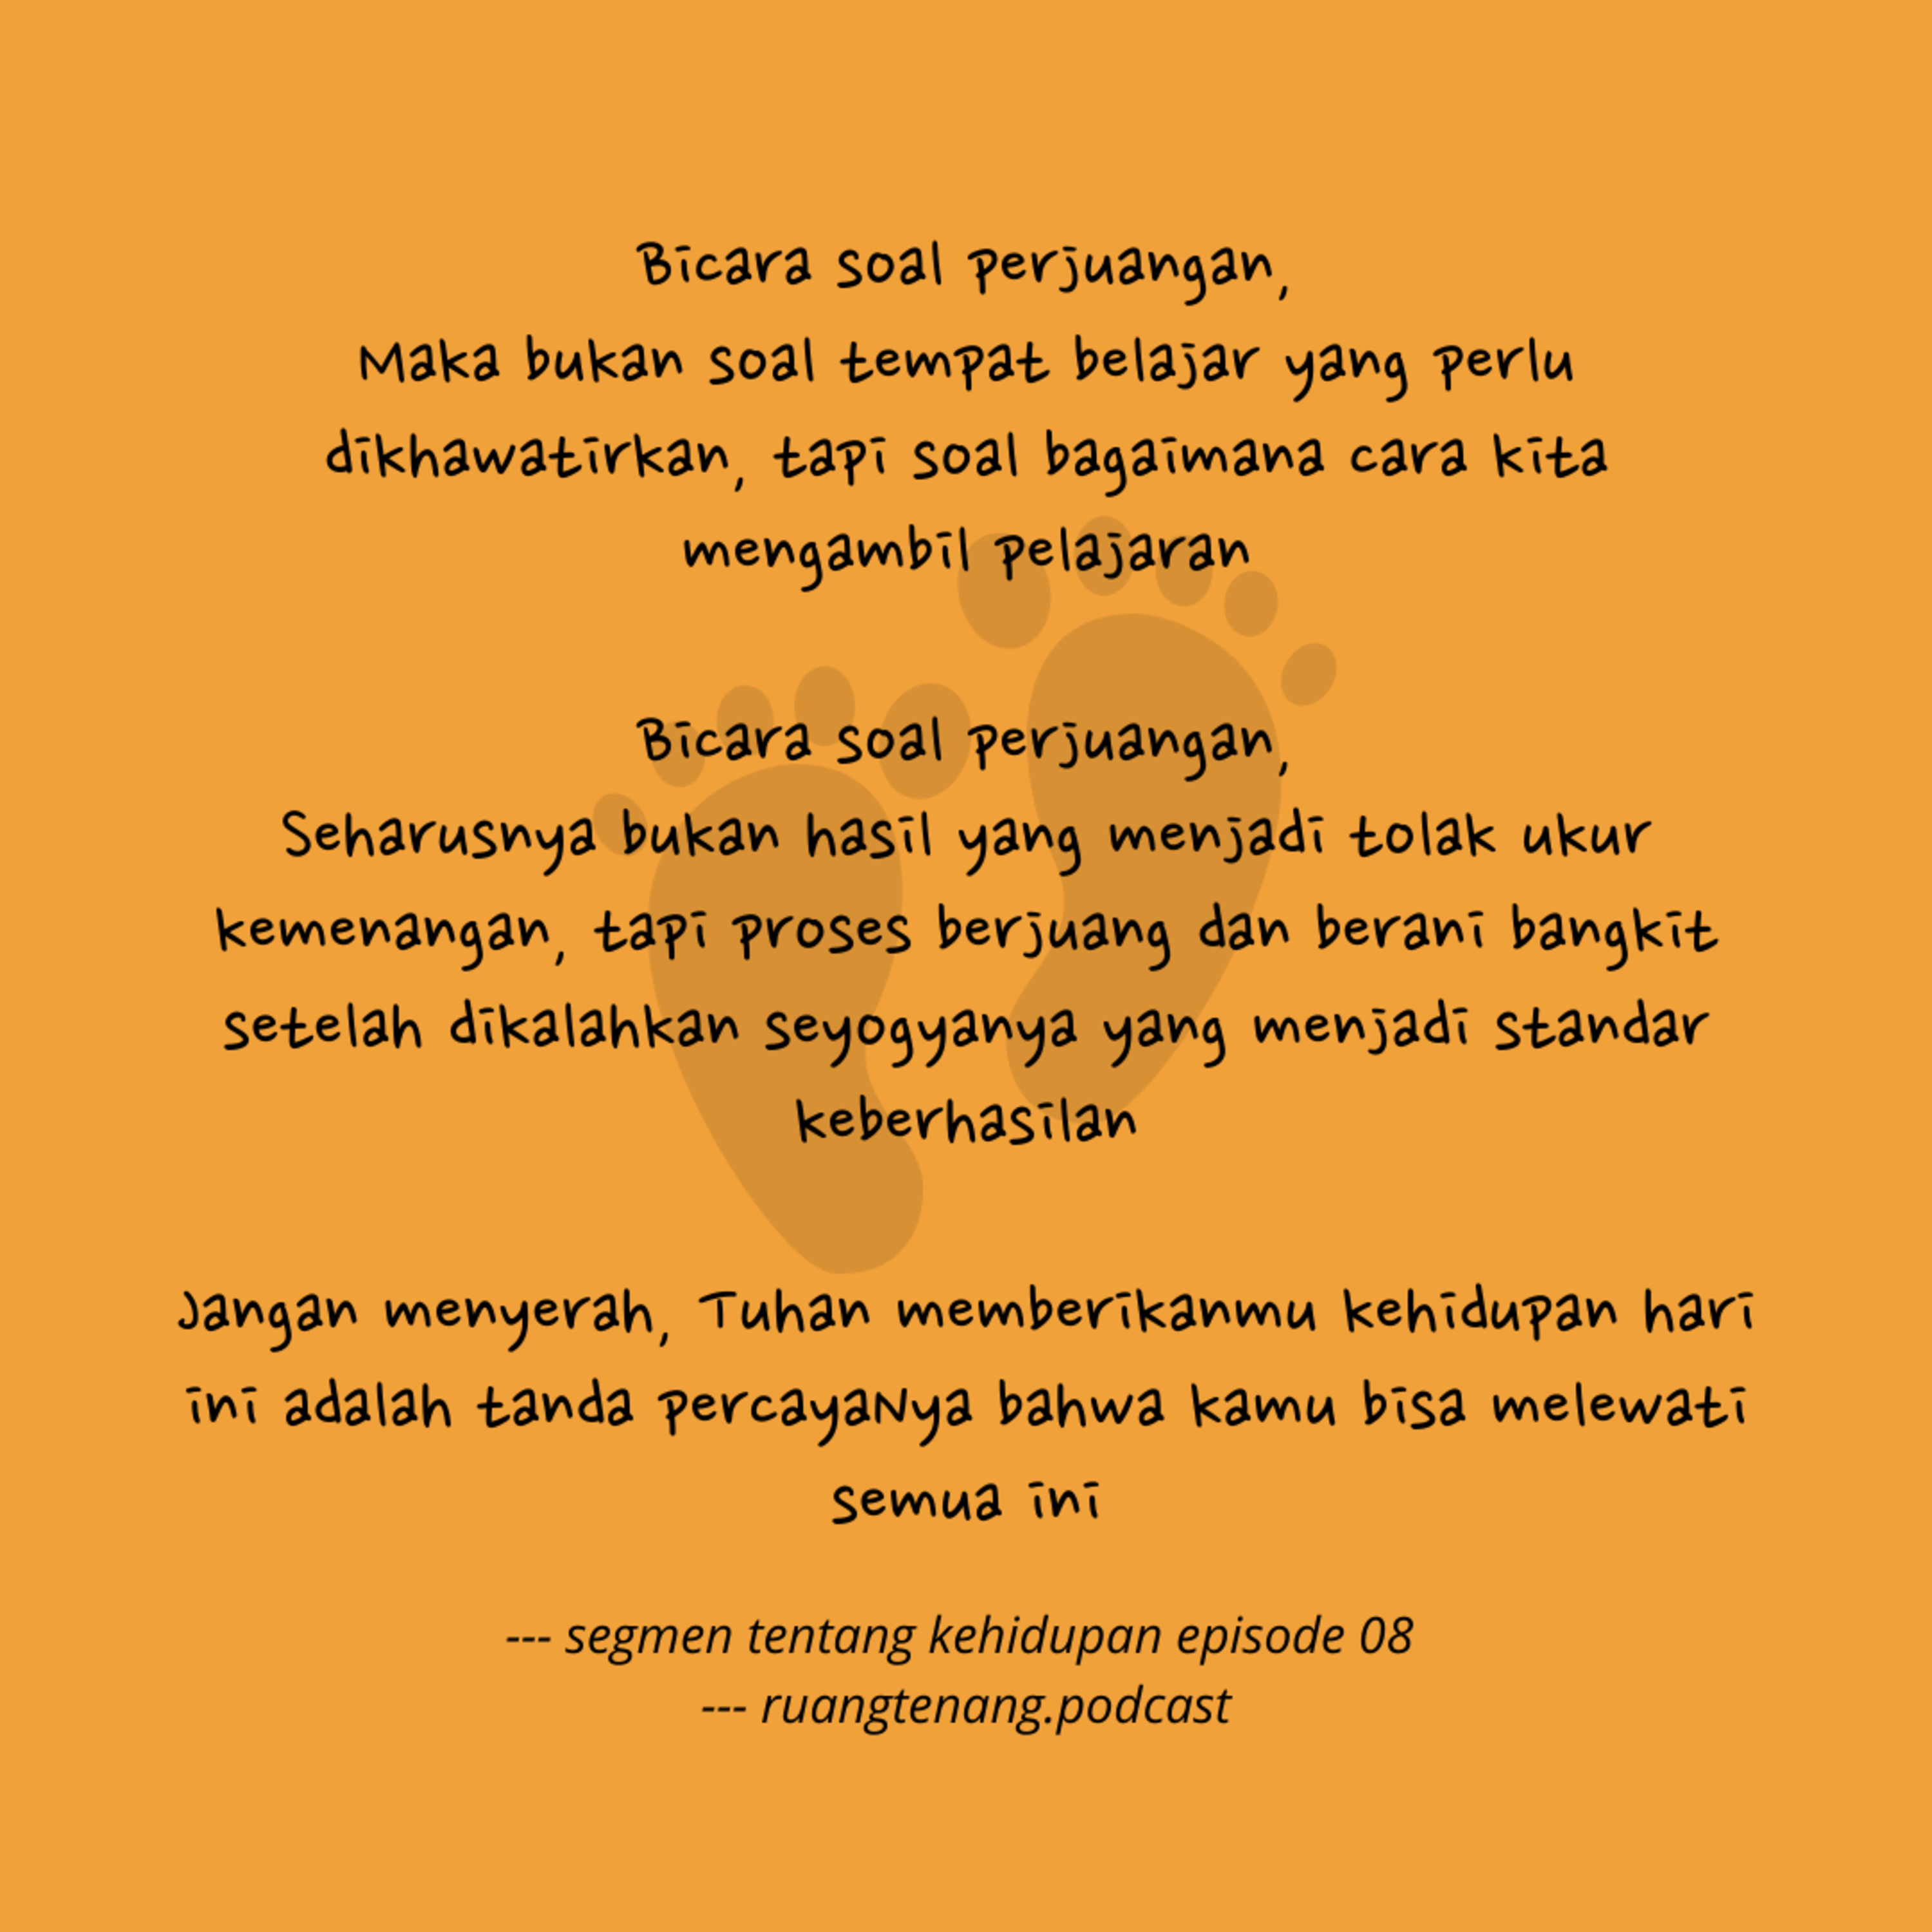 Bicara soal perjuangan,
Maka bukan soal tempat belajar yang perlu
dikhawatirkan, tapi soal bagaimana cara kita
mengambil pelajaran
Bicara soal perjuangan,
Seharusnya bukan hasil yang menjadi tolak ukur
kemenangan, tapi proses berjuang dan berani bangkit
setelah dikalahkan seyogyanya yang menjadi standar
keberhasilan
Jangan menyerah, Tuhan memberikanmu kehidupan hari
ini adalah tanda percayaNya bahwa kamu bisa melewati
semua ini
--- segmen tentang kehidupan episode 08
--- ruangtenang.podcast